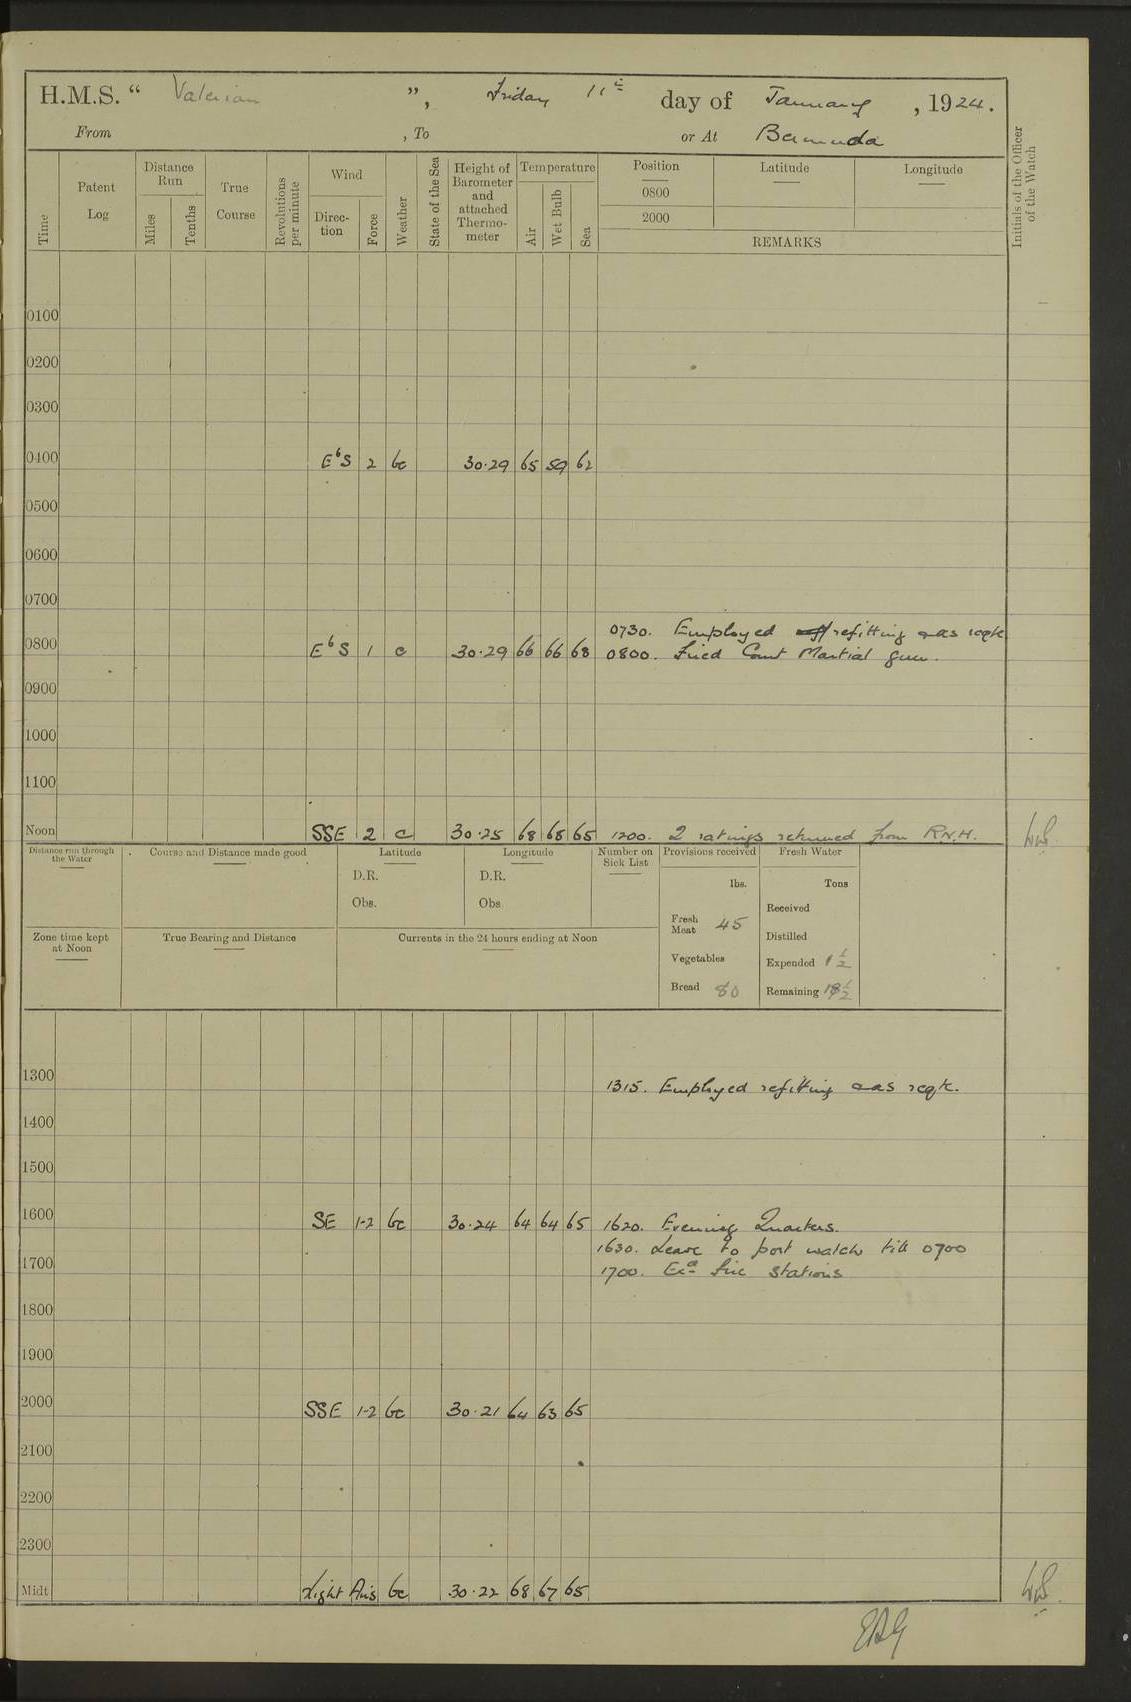 H.M.S. “ Valerian ”, Friday 11th day of January, 1924.
From , To or At Bermuda
Time
Patent Log
Distance Run
Miles
Tenths
True Course
Revolutions per minute
Wind
Direc-tion
Force
Weather
State of the Sea
Height of Barometer and attached Thermo-meter
Temperature
Air
Wet Bulb
Sea
Position
0800
2000
Latitude
Longitude
REMARKS
Initials of the Officer of the Watch
0100
0200
0300
0400 EbS 2 bc 30.29 65 59 62
0500
0600
0700
0730. Employed refitting & as reqte
0800 EbS 1 c 30.29 66 66 68 0800. Fired Court Martial gun.
0900
1000
1100
Noon SSE 2 c 30.25 68 68 65 1200. 2 ratings returned from R.N.H.
Distance run through the Water
Course and Distance made good
Latitude
D.R.
Obs.
Longitude
D.R.
Obs
Number on Sick List
Provisions received
lbs.
Fresh Meat 45
Vegetables
Bread 80
Fresh Water
Tons
Received
Distilled
Expended 1 1/2
Remaining
Zone time kept at Noon
True Bearing and Distance
Currents in the 24 hours ending at Noon
1300 1315. Employed refitting & as reqte.
1400
1500
1600 SE 1-2 bc 30.24 64 64 65 1620. Evening Quarters.
1630. Leave to port watch till 0700
1700 1700. Exd fire stations
1800
1900
2000 SSE 1-2 bc 30.21 64 63 65
2100
2200
2300
Midt Light Airs bc 30.22 68 67 65